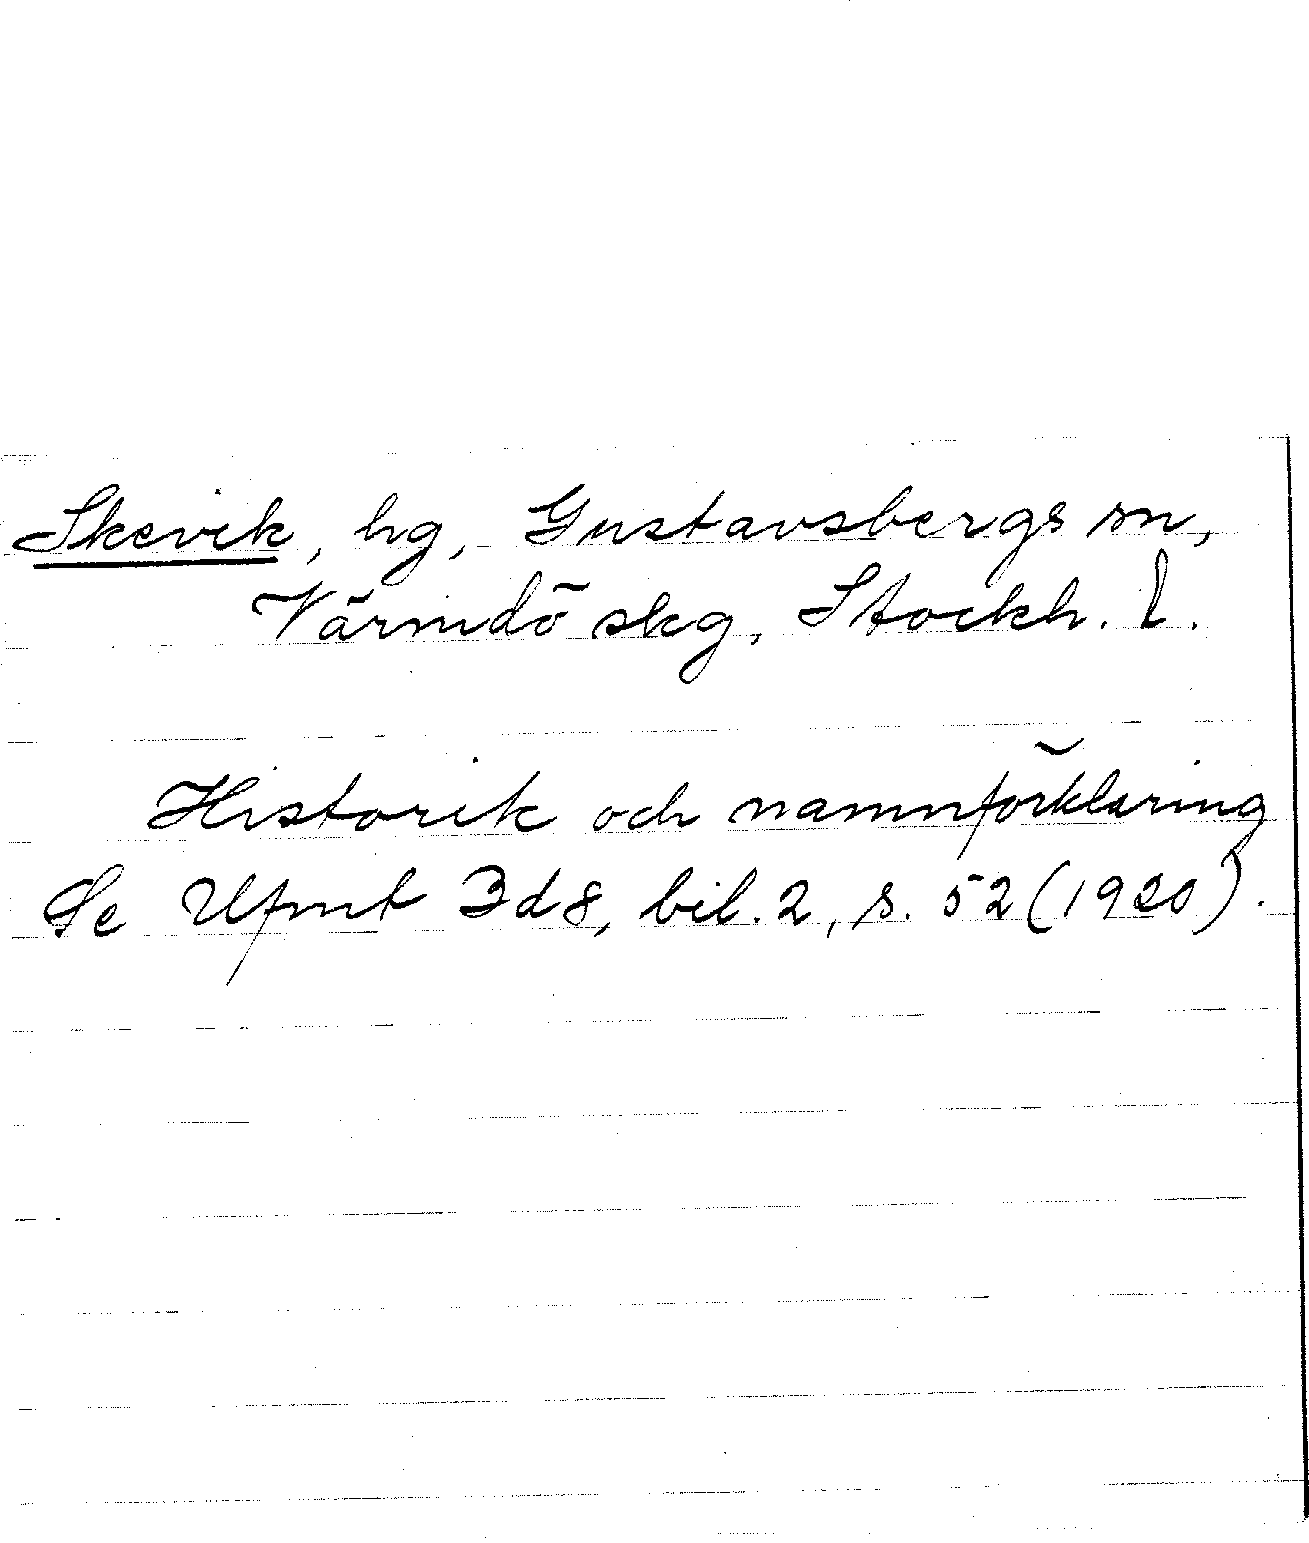 Skevik, hg, Gustavsbergs sn,
Värmdö skg, Stockh. l.
Historik och namnförklaring
Se Ufmt 3d8, bil. 2, s. 52 (1920).